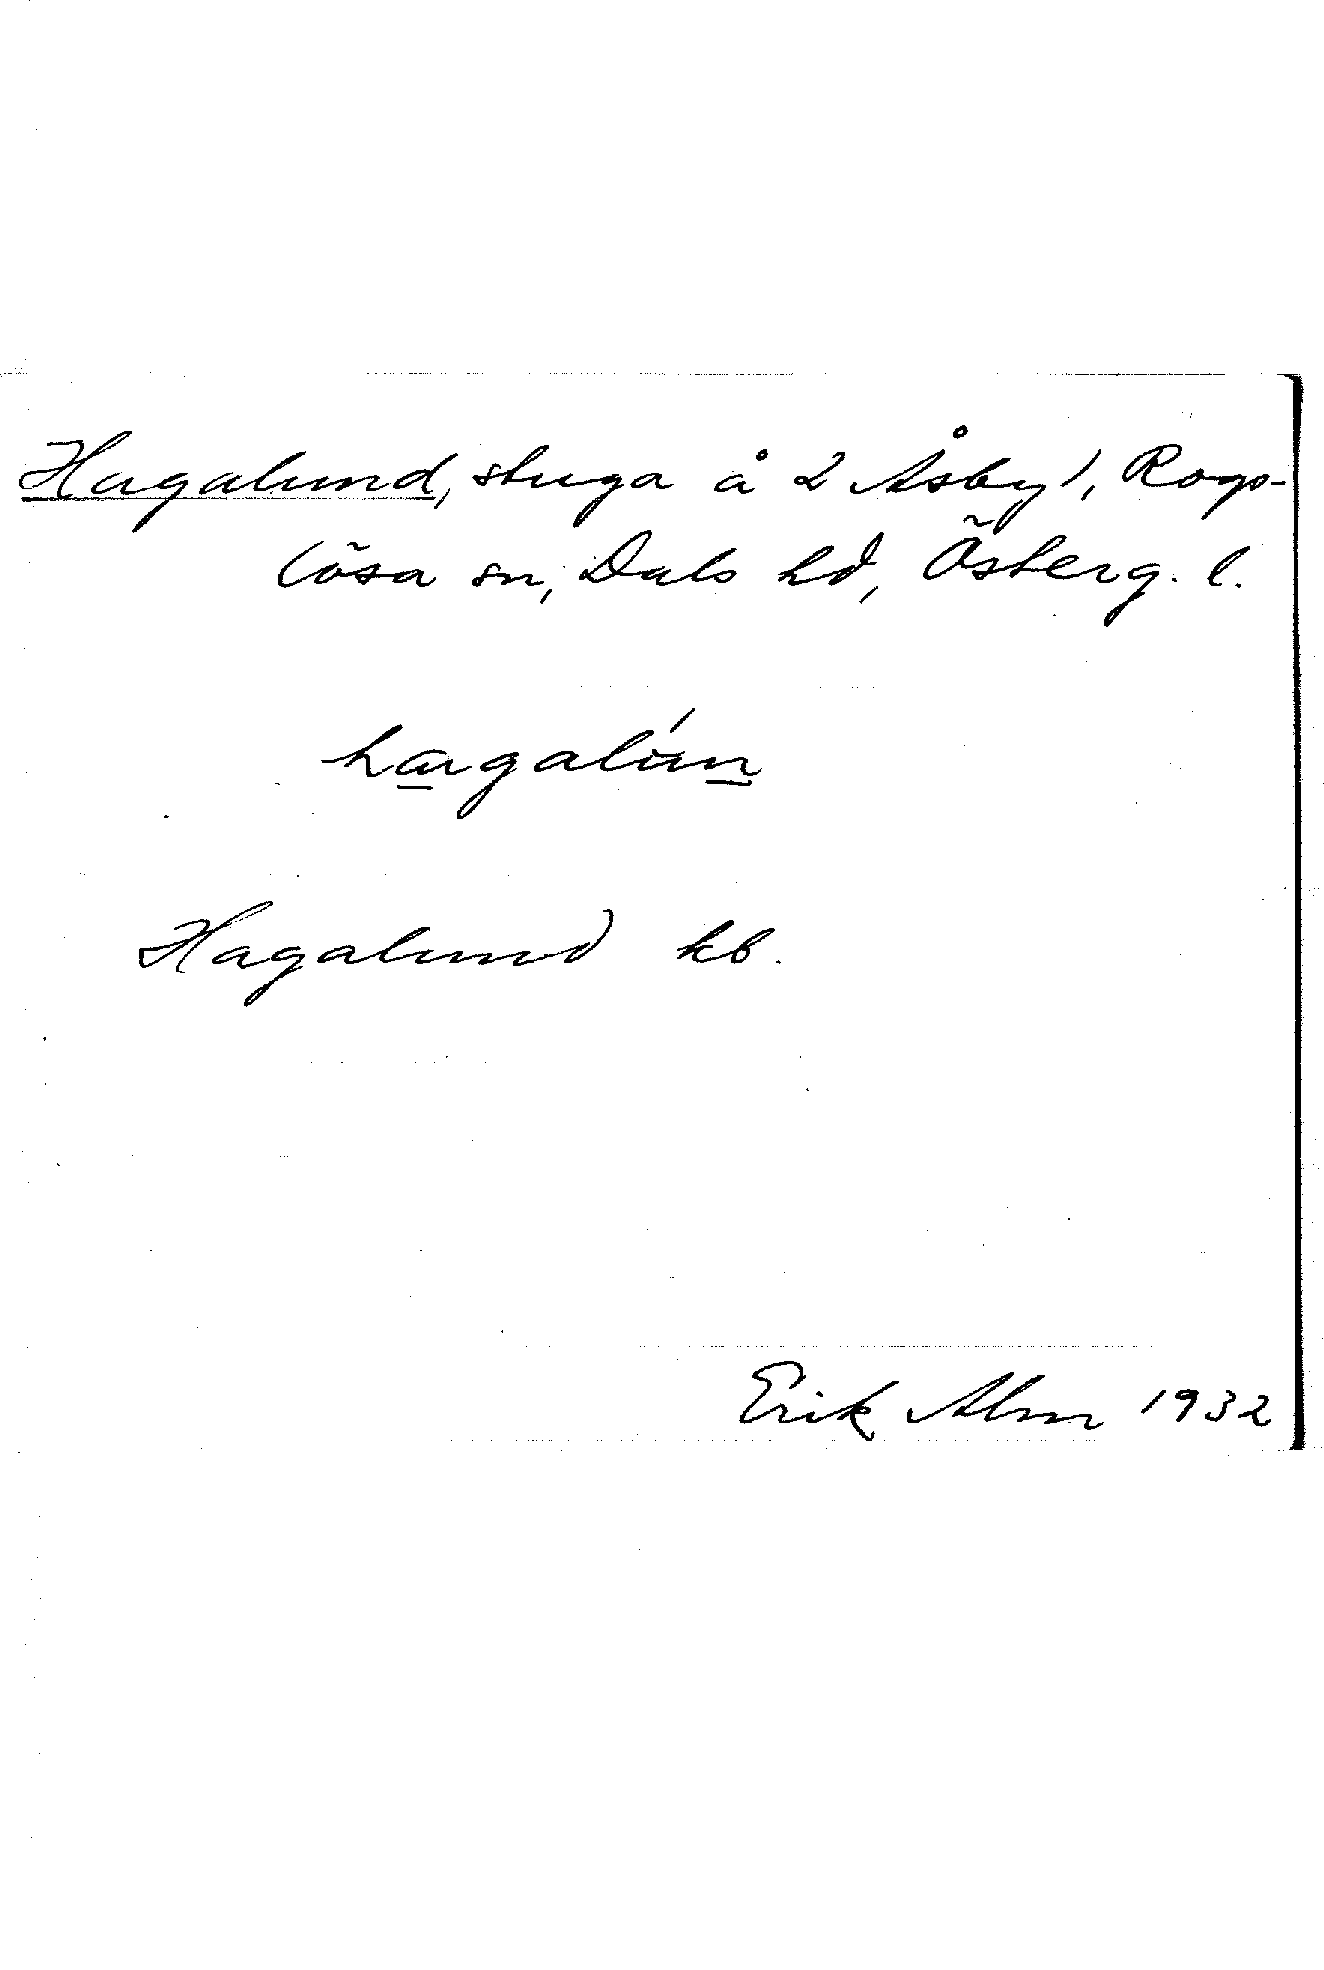 Hagalund, stuga å 2 Åsby 1, Rogs-
lösa sn, Dals hd, Österg. l.
hagalún
Hagalund kb.
Erik Alm 1932